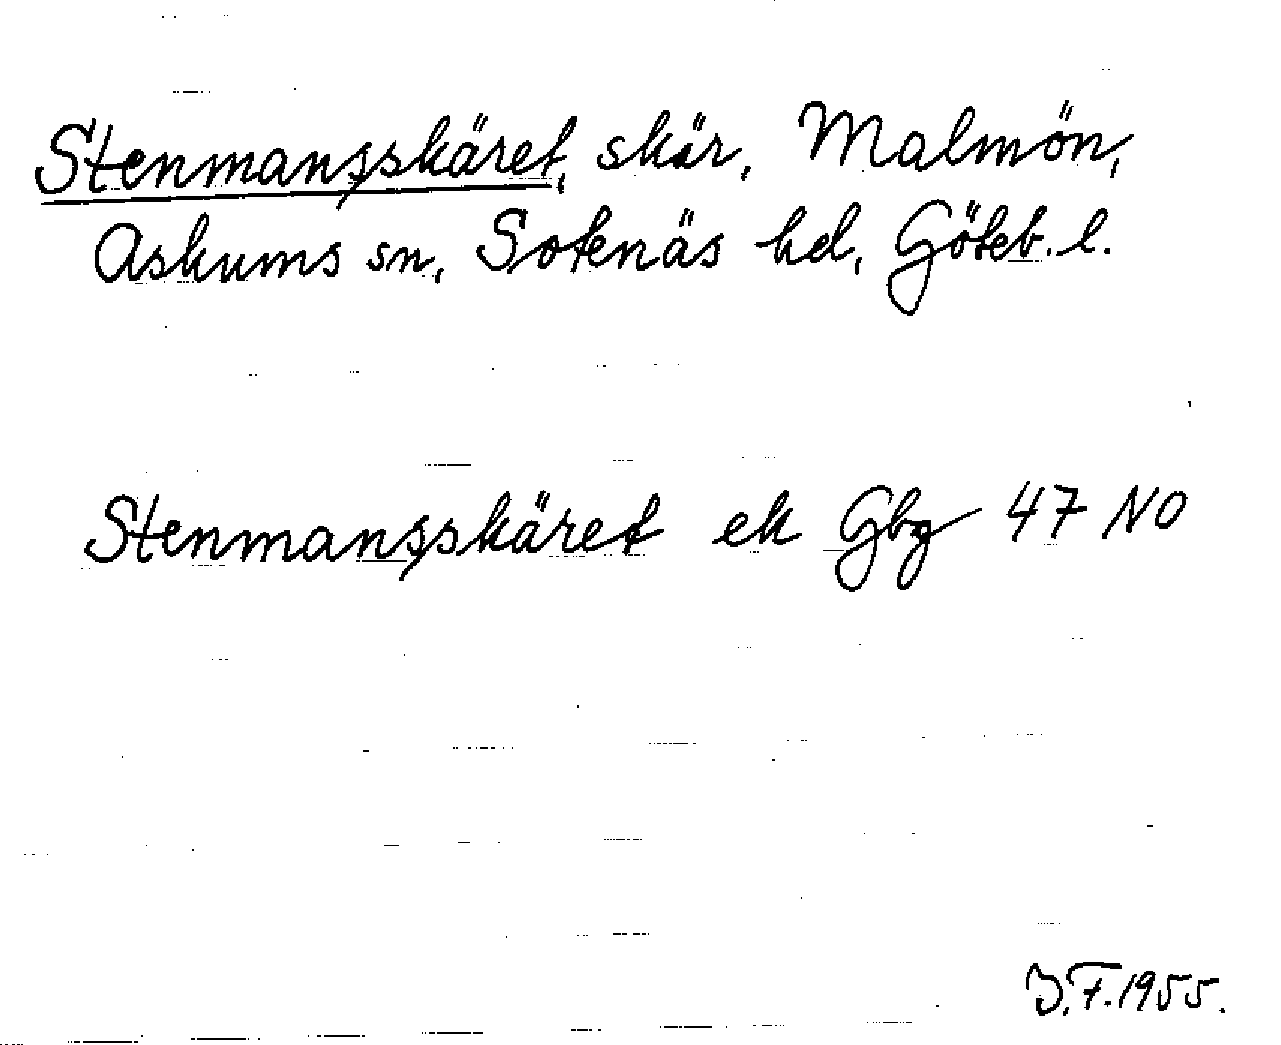 Stenmansskäret, skär, Malmön,
Askums sn, Sotenäs hd, Göteb. l.
Stenmansskäret ek Gbg 47 NO
J.F. 1955.